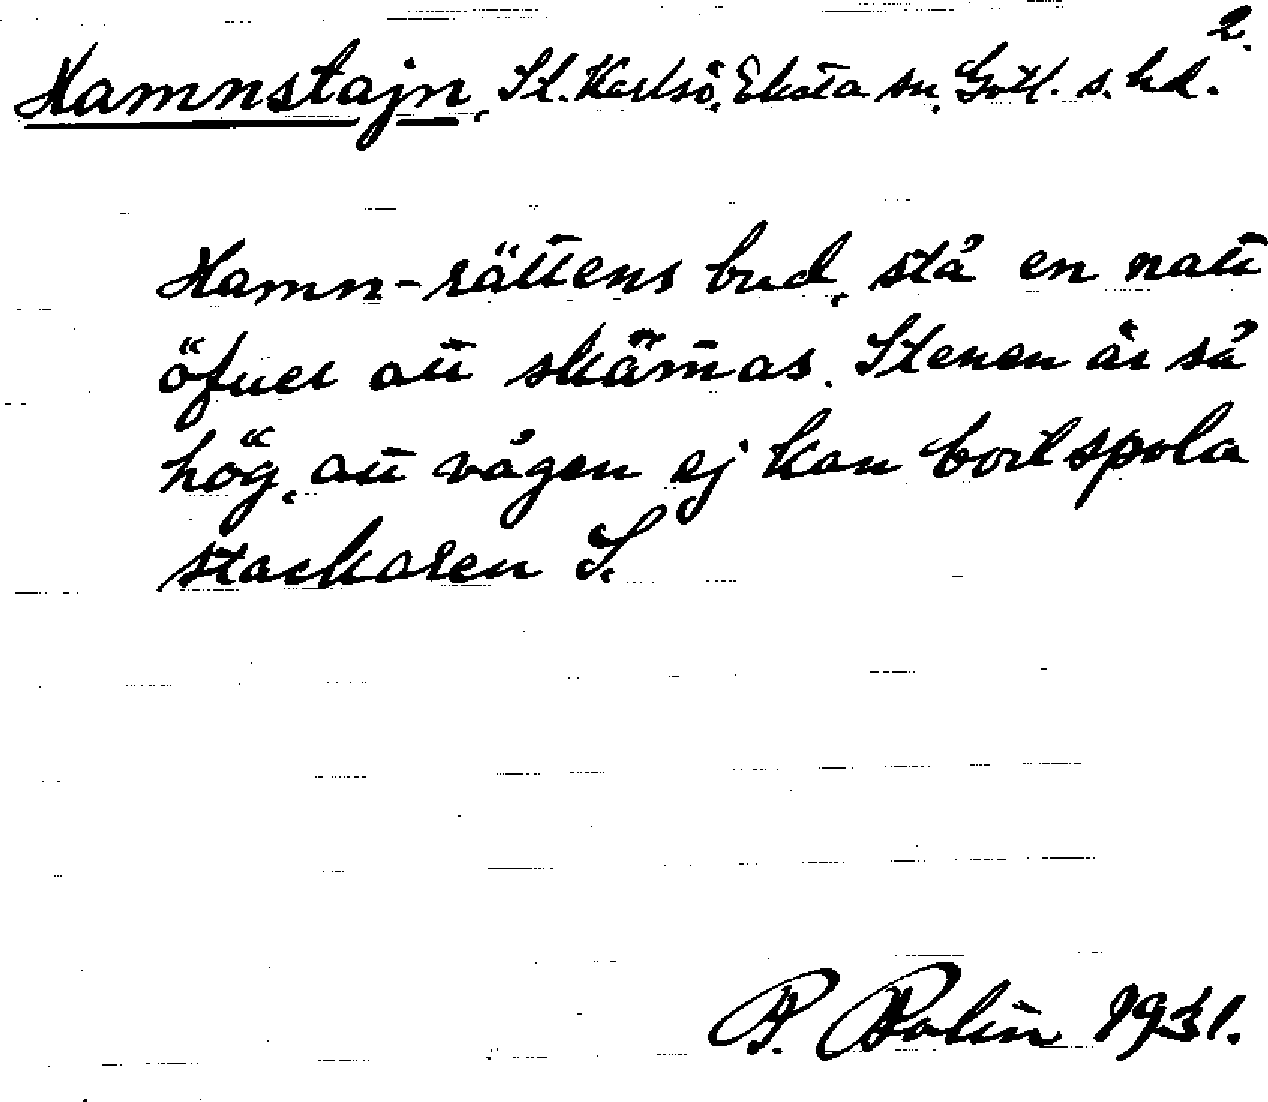 2.
Hamnstajn, St. Karlsö, Eksta sn, Gotl. s. hd.
Hamn-rättens bud, stå en natt
öfver att skämmas. Stenen är så
hög, att vågen ej kan bortspola
stackaren S.
P. Bolin 1931.